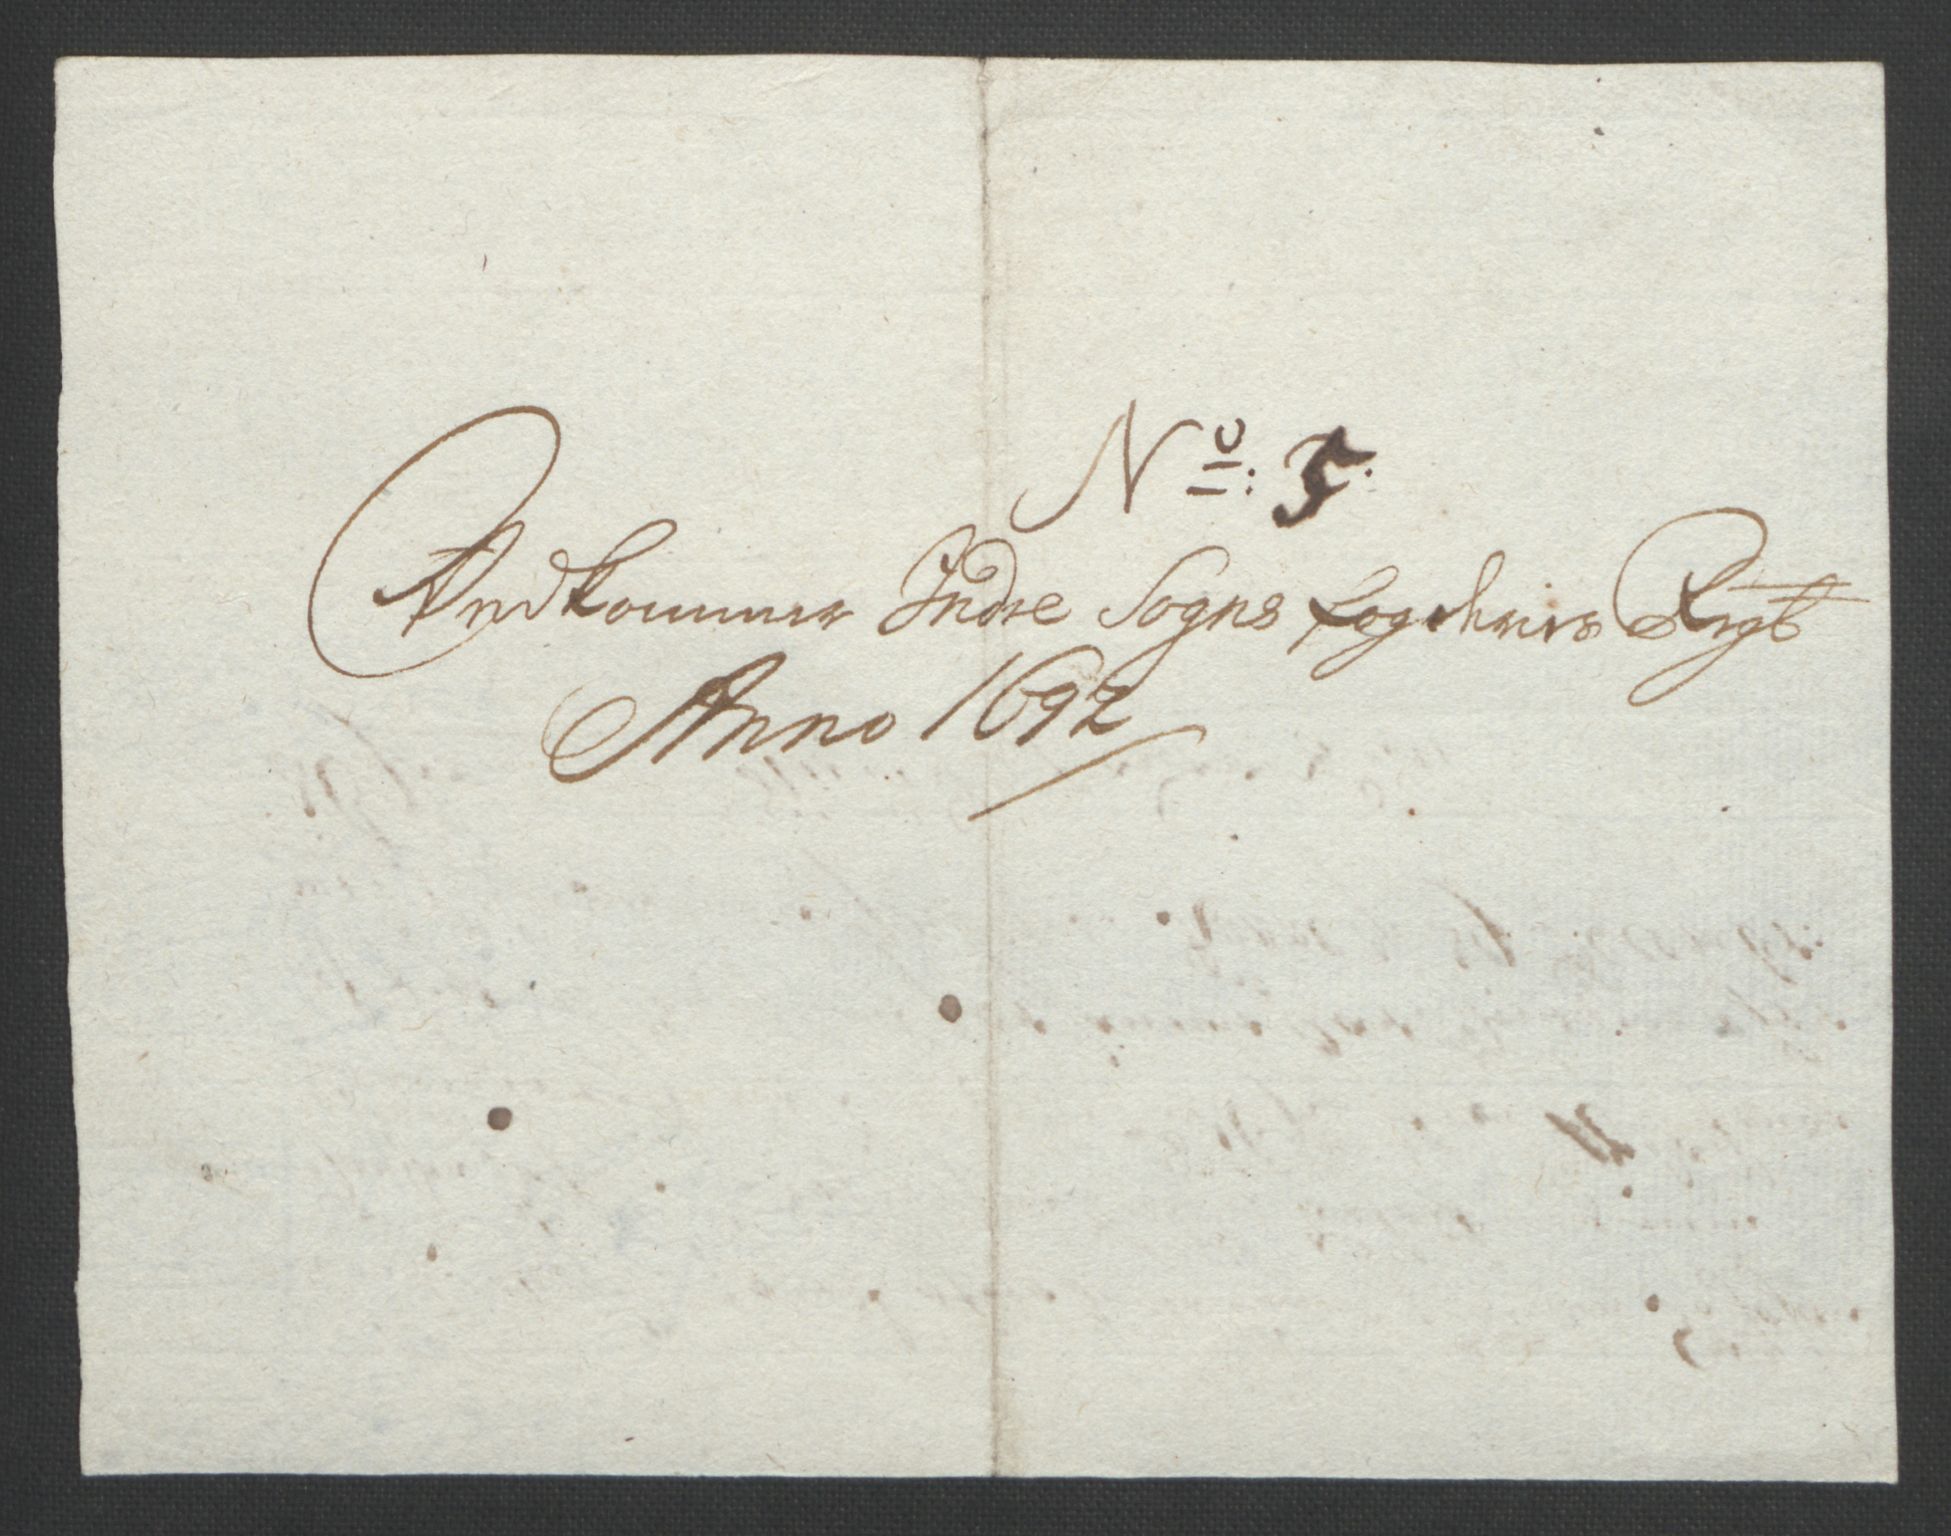 No: 5.
Andkommer Indre Sogns fogderies Regb
Anno 1692